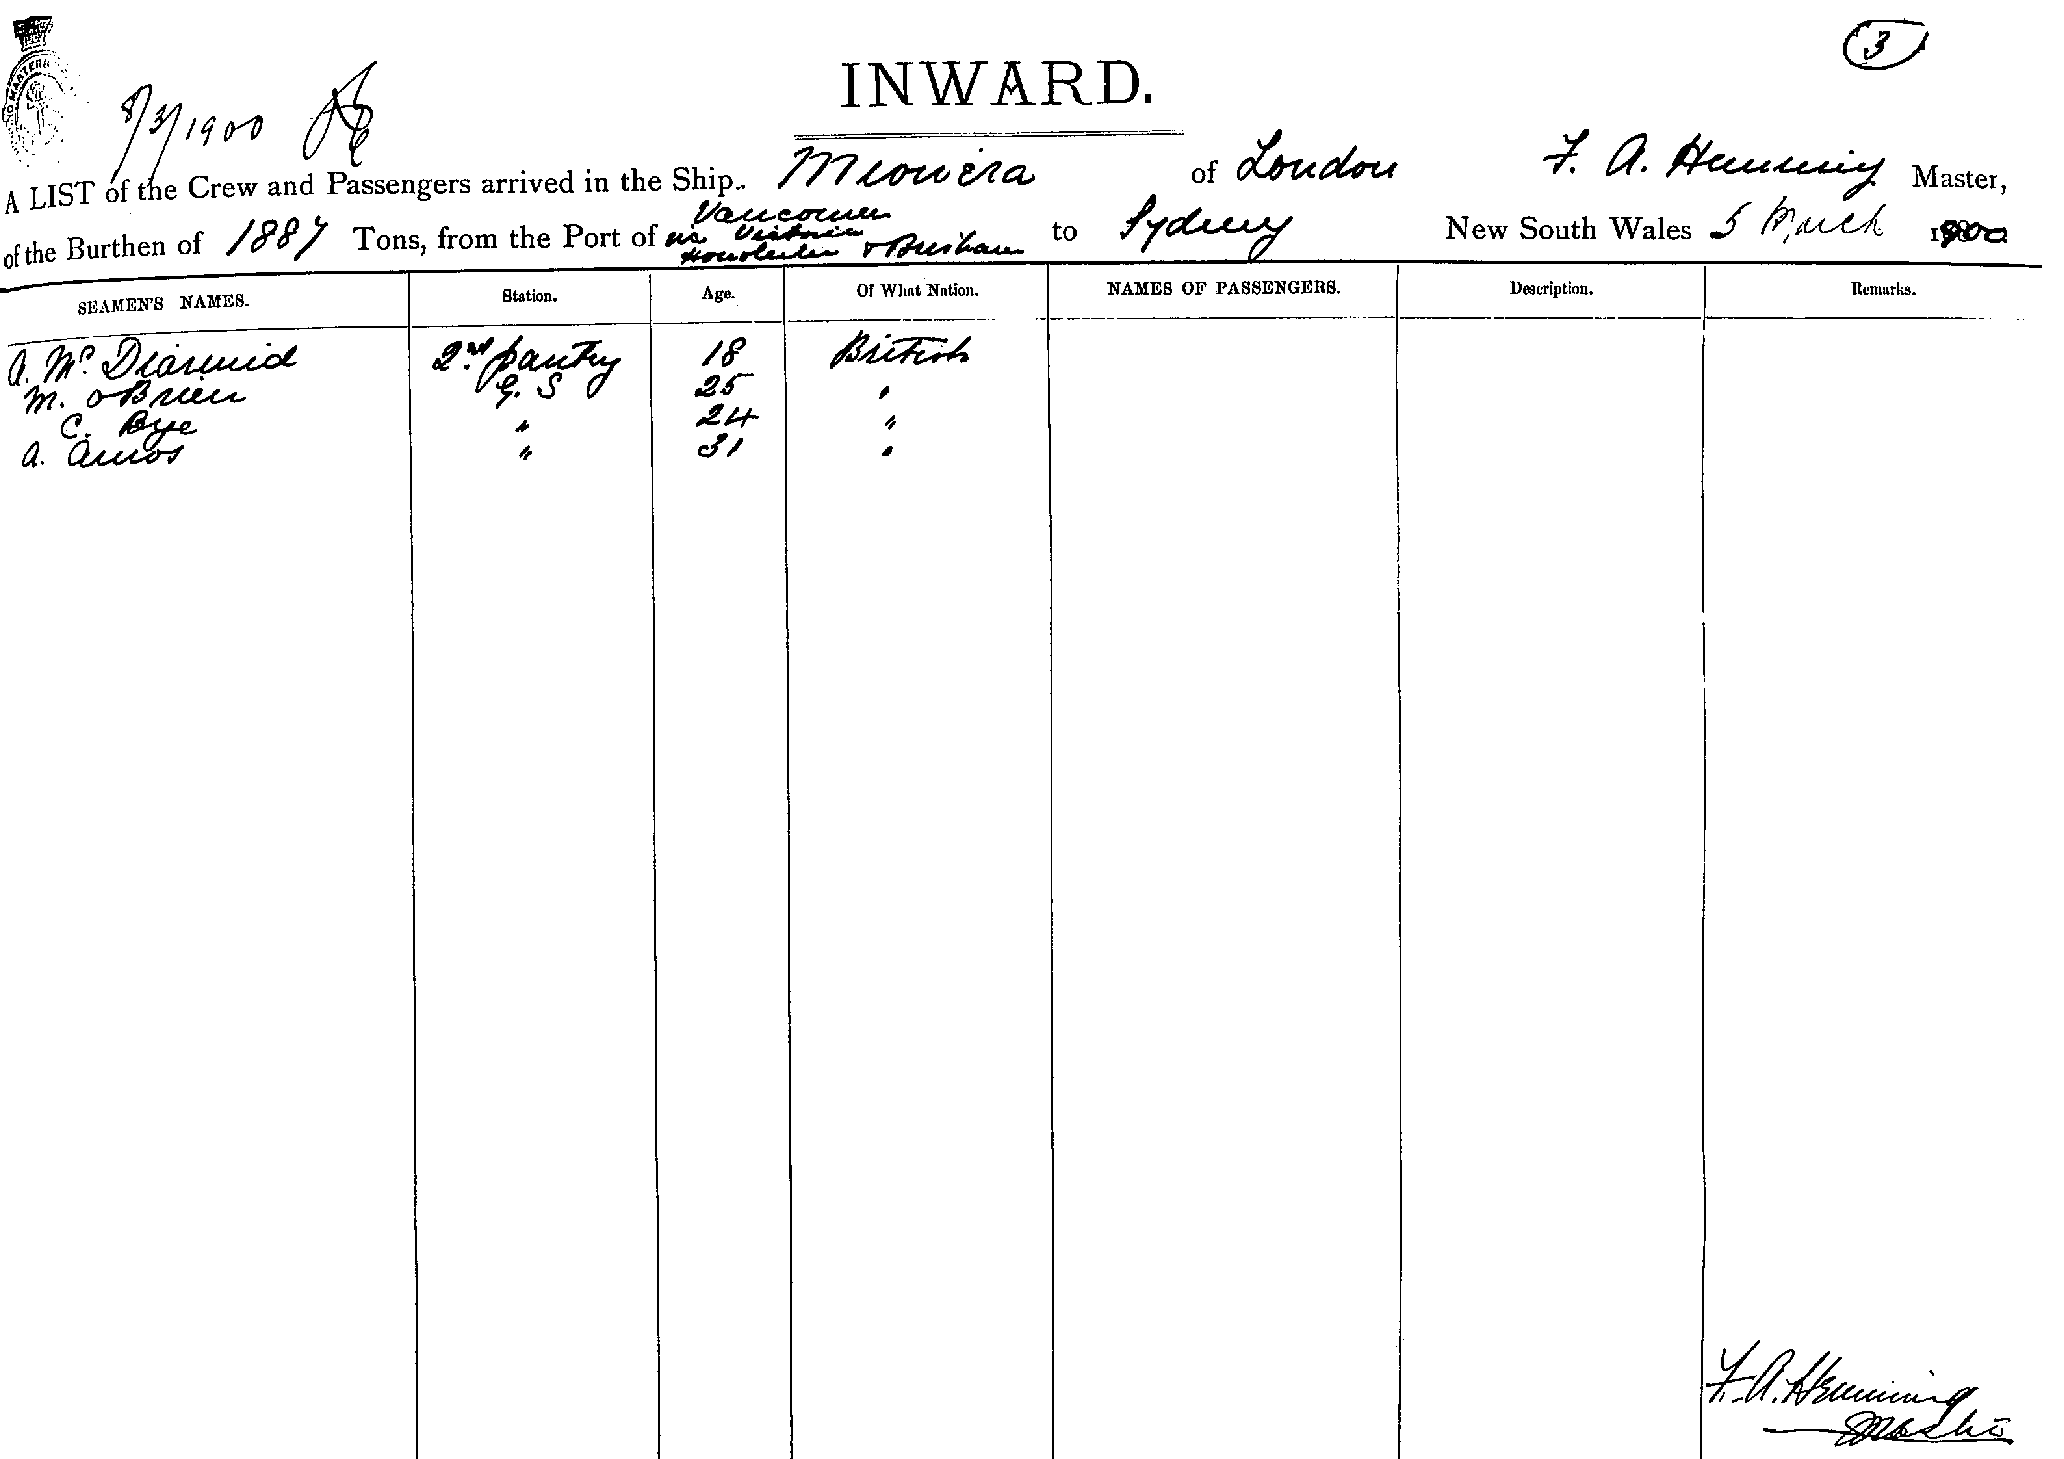 3
INWARD.
8/3/1900
A LIST of the Crew and Passengers arrived in the Ship Miowera of London F. A. Hemming Master,
of the Burthen of 1887 Tons, from the Port of Vancouver via Victoria Honolulu & Brisbane to Sydney New South Wales 5 March 1900
SEAMEN'S NAMES. Station. Age. Of What Nation. NAMES OF PASSENGERS. Description. Remarks.
A. McDiarmid 2nd pantry 18 British
M. OBrien G. S 25 "
C. Bye " 24 "
A. Amos " 31 "
F. A. Hemming
Master